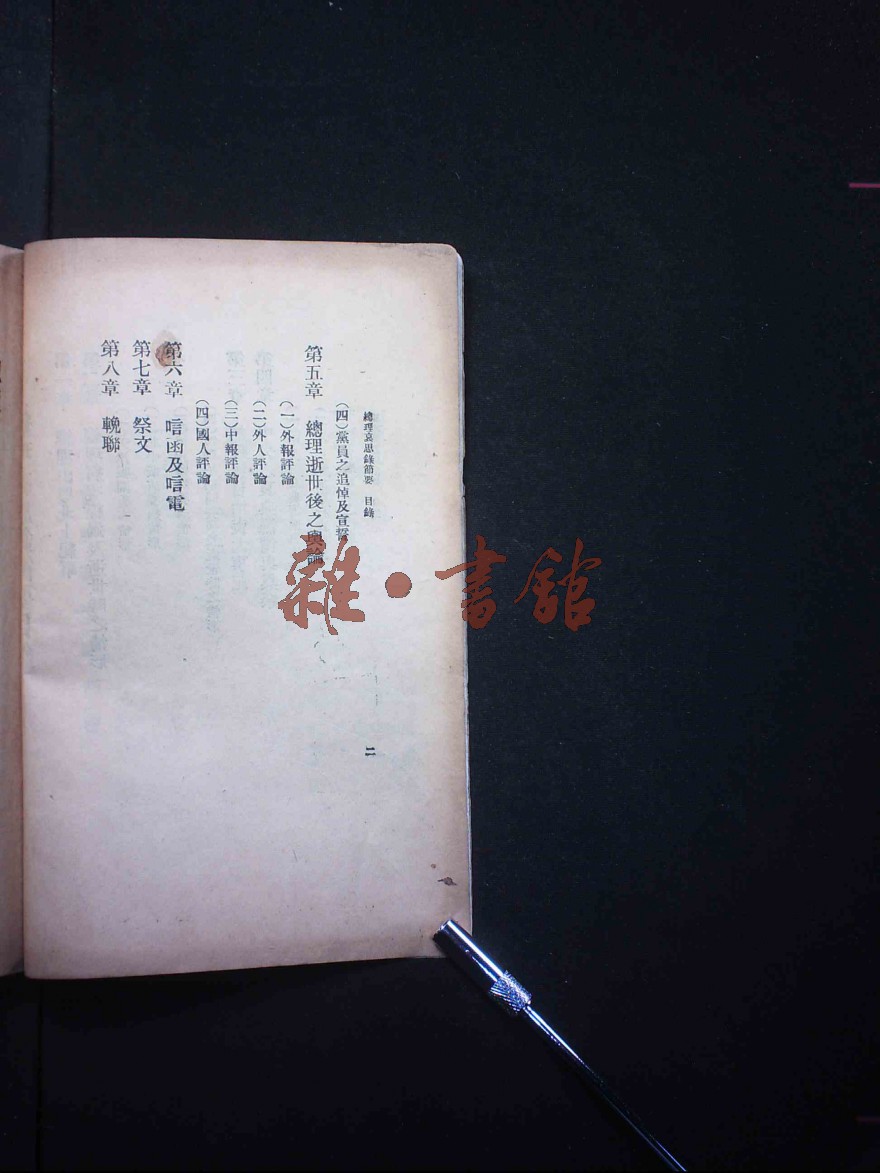 總理哀思錄節要 目錄
(四)黨員之追悼及宣誓
第五章 總理逝世後之輿論
(一)外報評論
(二)外人評論
(三)中報評論
(四)國人評論
第六章 唁函及唁電
第七章 祭文
第八章 輓聯
二
雜·書館